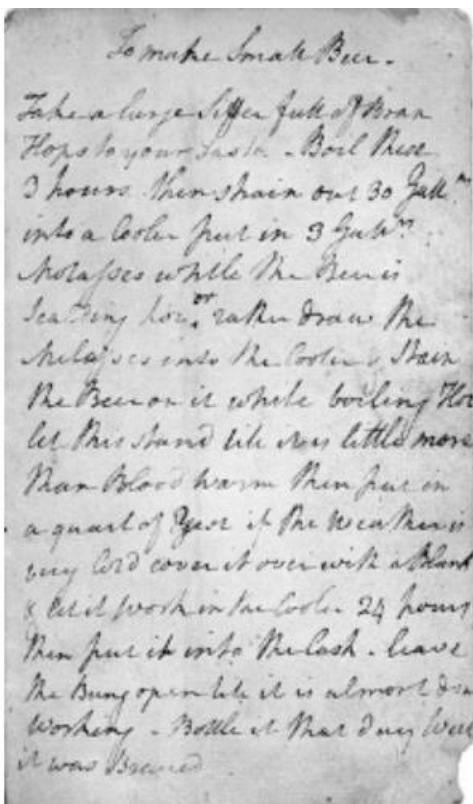 To make Small Beer.
Take a large Siffer full of Bran
Hops to your Taste. - Boil these
3 hours. then strain out 30 Gall.ⁿˢ
into a Cooler put in 3 Gall.ⁿˢ
Molasses while the Beer is
Scalding hot or rather draw the
Molasses into the Cooler & Strain
the Beer on it while boiling Hot
let this stand till it is little more
than Blood warm then put in
a quart of Yest if the weather is
very Cold cover it over with a Blank
& let it work in the Cooler 24 hours
then put it into the Cask - leave
the Bung open till it is almost don
working - Bottle it that day Week
it was Brewed